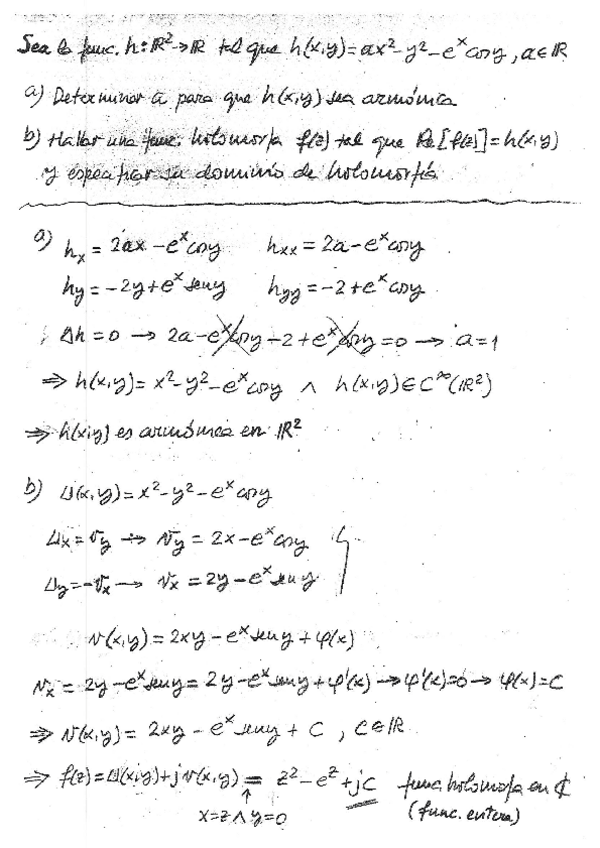 Sea la func. h: ℝ²→ℝ tal que h(x,y)=ax²-y²-eˣcosy, a∈ℝ
a) Determinar a para que h(x,y) sea armónica
b) Hallar una func. holomorfa f(z) tal que Re[f(z)]=h(x,y)
y especificar su dominio de holomorfía
a) hx = 2ax - eˣcosy hxx = 2a - eˣcosy
hy = -2y + eˣseny hyy = -2 + eˣcosy
Δh = 0 → 2a - eˣcosy - 2 + eˣcosy = 0 → a=1
⇒ h(x,y) = x²-y²-eˣcosy ∧ h(x,y)∈C^∞(ℝ²)
⇒ h(x,y) es armónica en ℝ²
b) u(x,y) = x²-y²-eˣcosy
ux = vy → vy = 2x - eˣcosy
uy = -vx → vx = 2y - eˣseny
v(x,y) = 2xy - eˣseny + φ(x)
vx = 2y - eˣseny = 2y - eˣseny + φ'(x) → φ'(x)=0 → φ(x)=C
⇒ v(x,y) = 2xy - eˣseny + C, C∈ℝ
⇒ f(z) = u(x,y)+jv(x,y) = z² - e^z + jC func holomorfa en ℂ
↑
x=z ∧ y=0 (func. entera)